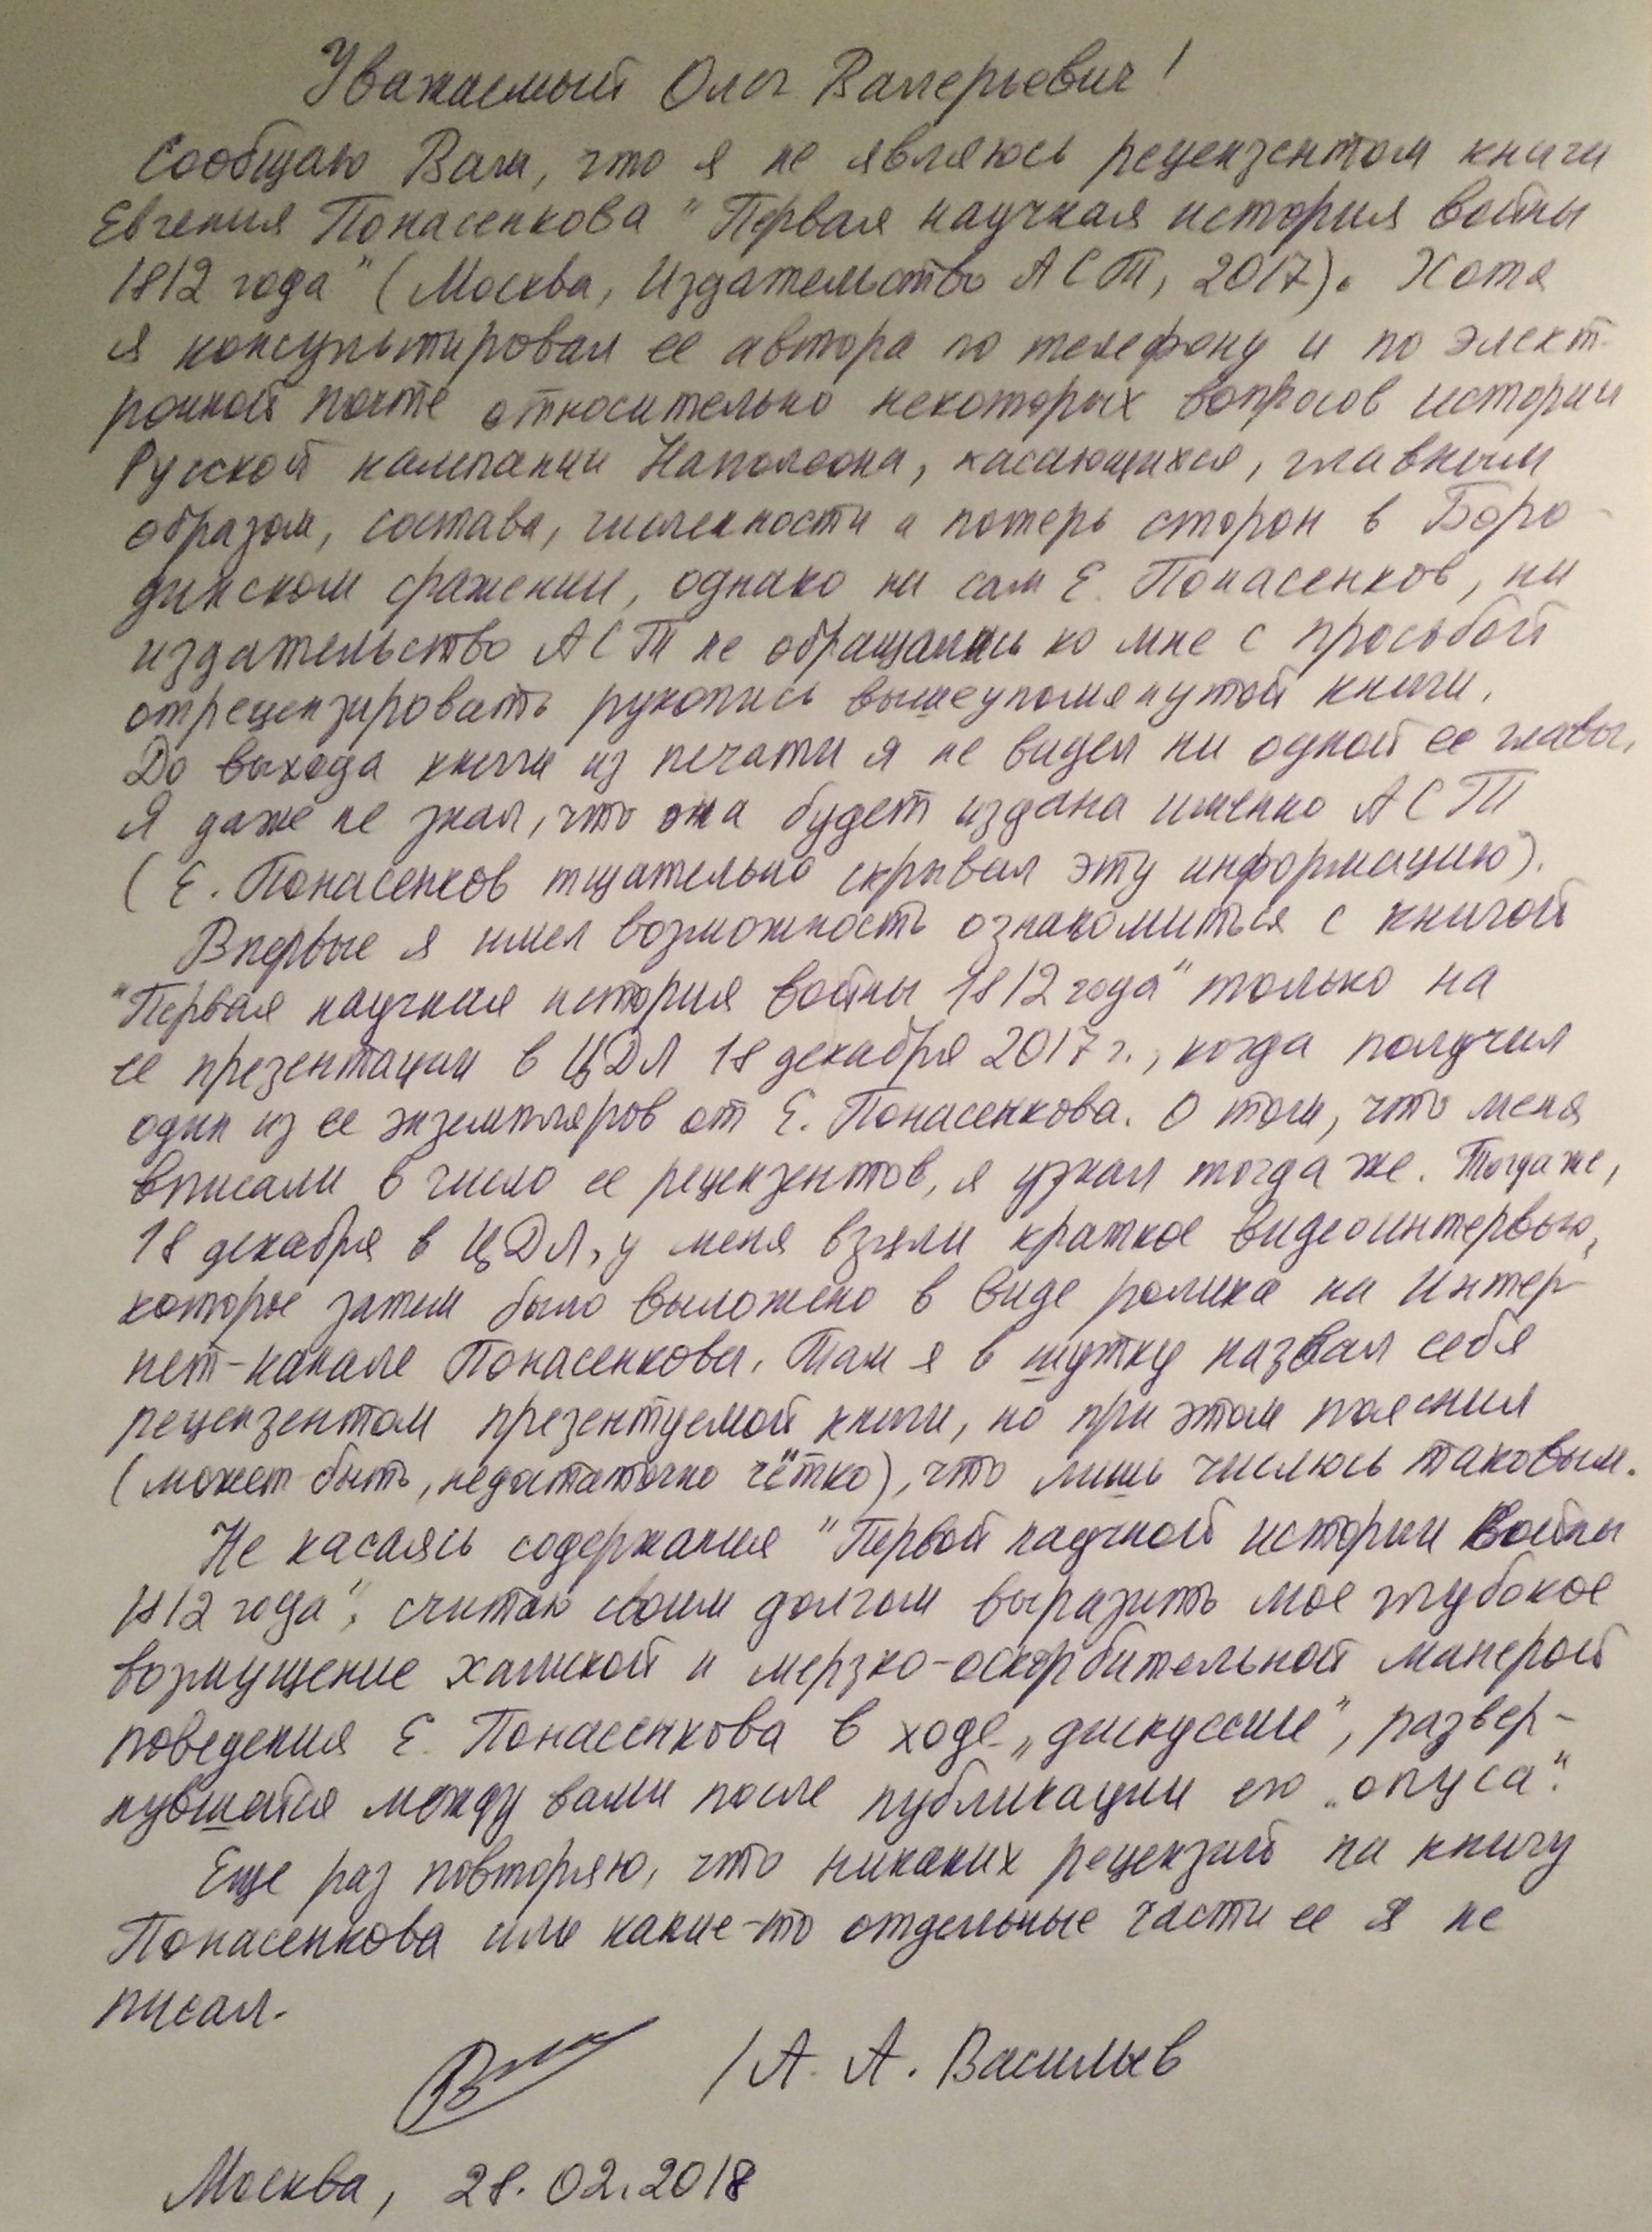 Уважаемый Олег Валерьевич!
Сообщаю Вам, что я не являюсь рецензентом книги
Евгения Понасенкова "Первая научная история войны
1812 года" (Москва, Издательство АСТ, 2017). Хотя
я консультировал ее автора по телефону и по элект-
ронной почте относительно некоторых вопросов истории
Русской кампании Наполеона, касающихся, главным
образом, состава, численности и потерь сторон в Боро-
динском сражении, однако ни сам Е. Понасенков, ни
издательство АСТ не обращались ко мне с просьбой
отрецензировать рукопись вышеупомянутой книги.
До выхода книги из печати я не видел ни одной ее главы,
Я даже не знал, что она будет издана именно АСТ
(Е. Понасенков тщательно скрывал эту информацию).
Впервые я имел возможность ознакомиться с книгой
"Первая научная история войны 1812 года" только на
ее презентации в ЦДЛ 18 декабря 2017 г., когда получил
один из ее экземпляров от Е. Понасенкова. О том, что меня
вписали в число ее рецензентов, я узнал тогда же. Тогда же,
18 декабря в ЦДЛ, у меня взяли краткое видеоинтервью,
которое затем было выложено в виде ролика на Интер-
нет-канале Понасенкова. Там я в шутку назвал себя
рецензентом презентуемой книги, но при этом пояснил
(может быть, недостаточно чётко), что лишь числюсь таковым.
Не касаясь содержания "Первой научной истории войны
1812 года", считаю своим долгом выразить мое глубокое
возмущение хамской и мерзко-оскорбительной манерой
поведения Е. Понасенкова в ходе „дискуссии", развер-
нувшейся между вами после публикации его „опуса".
Еще раз повторяю, что никаких рецензий на книгу
Понасенкова или какие-то отдельные части ее я не
писал.
/А. А. Васильев
Москва, 28.02.2018